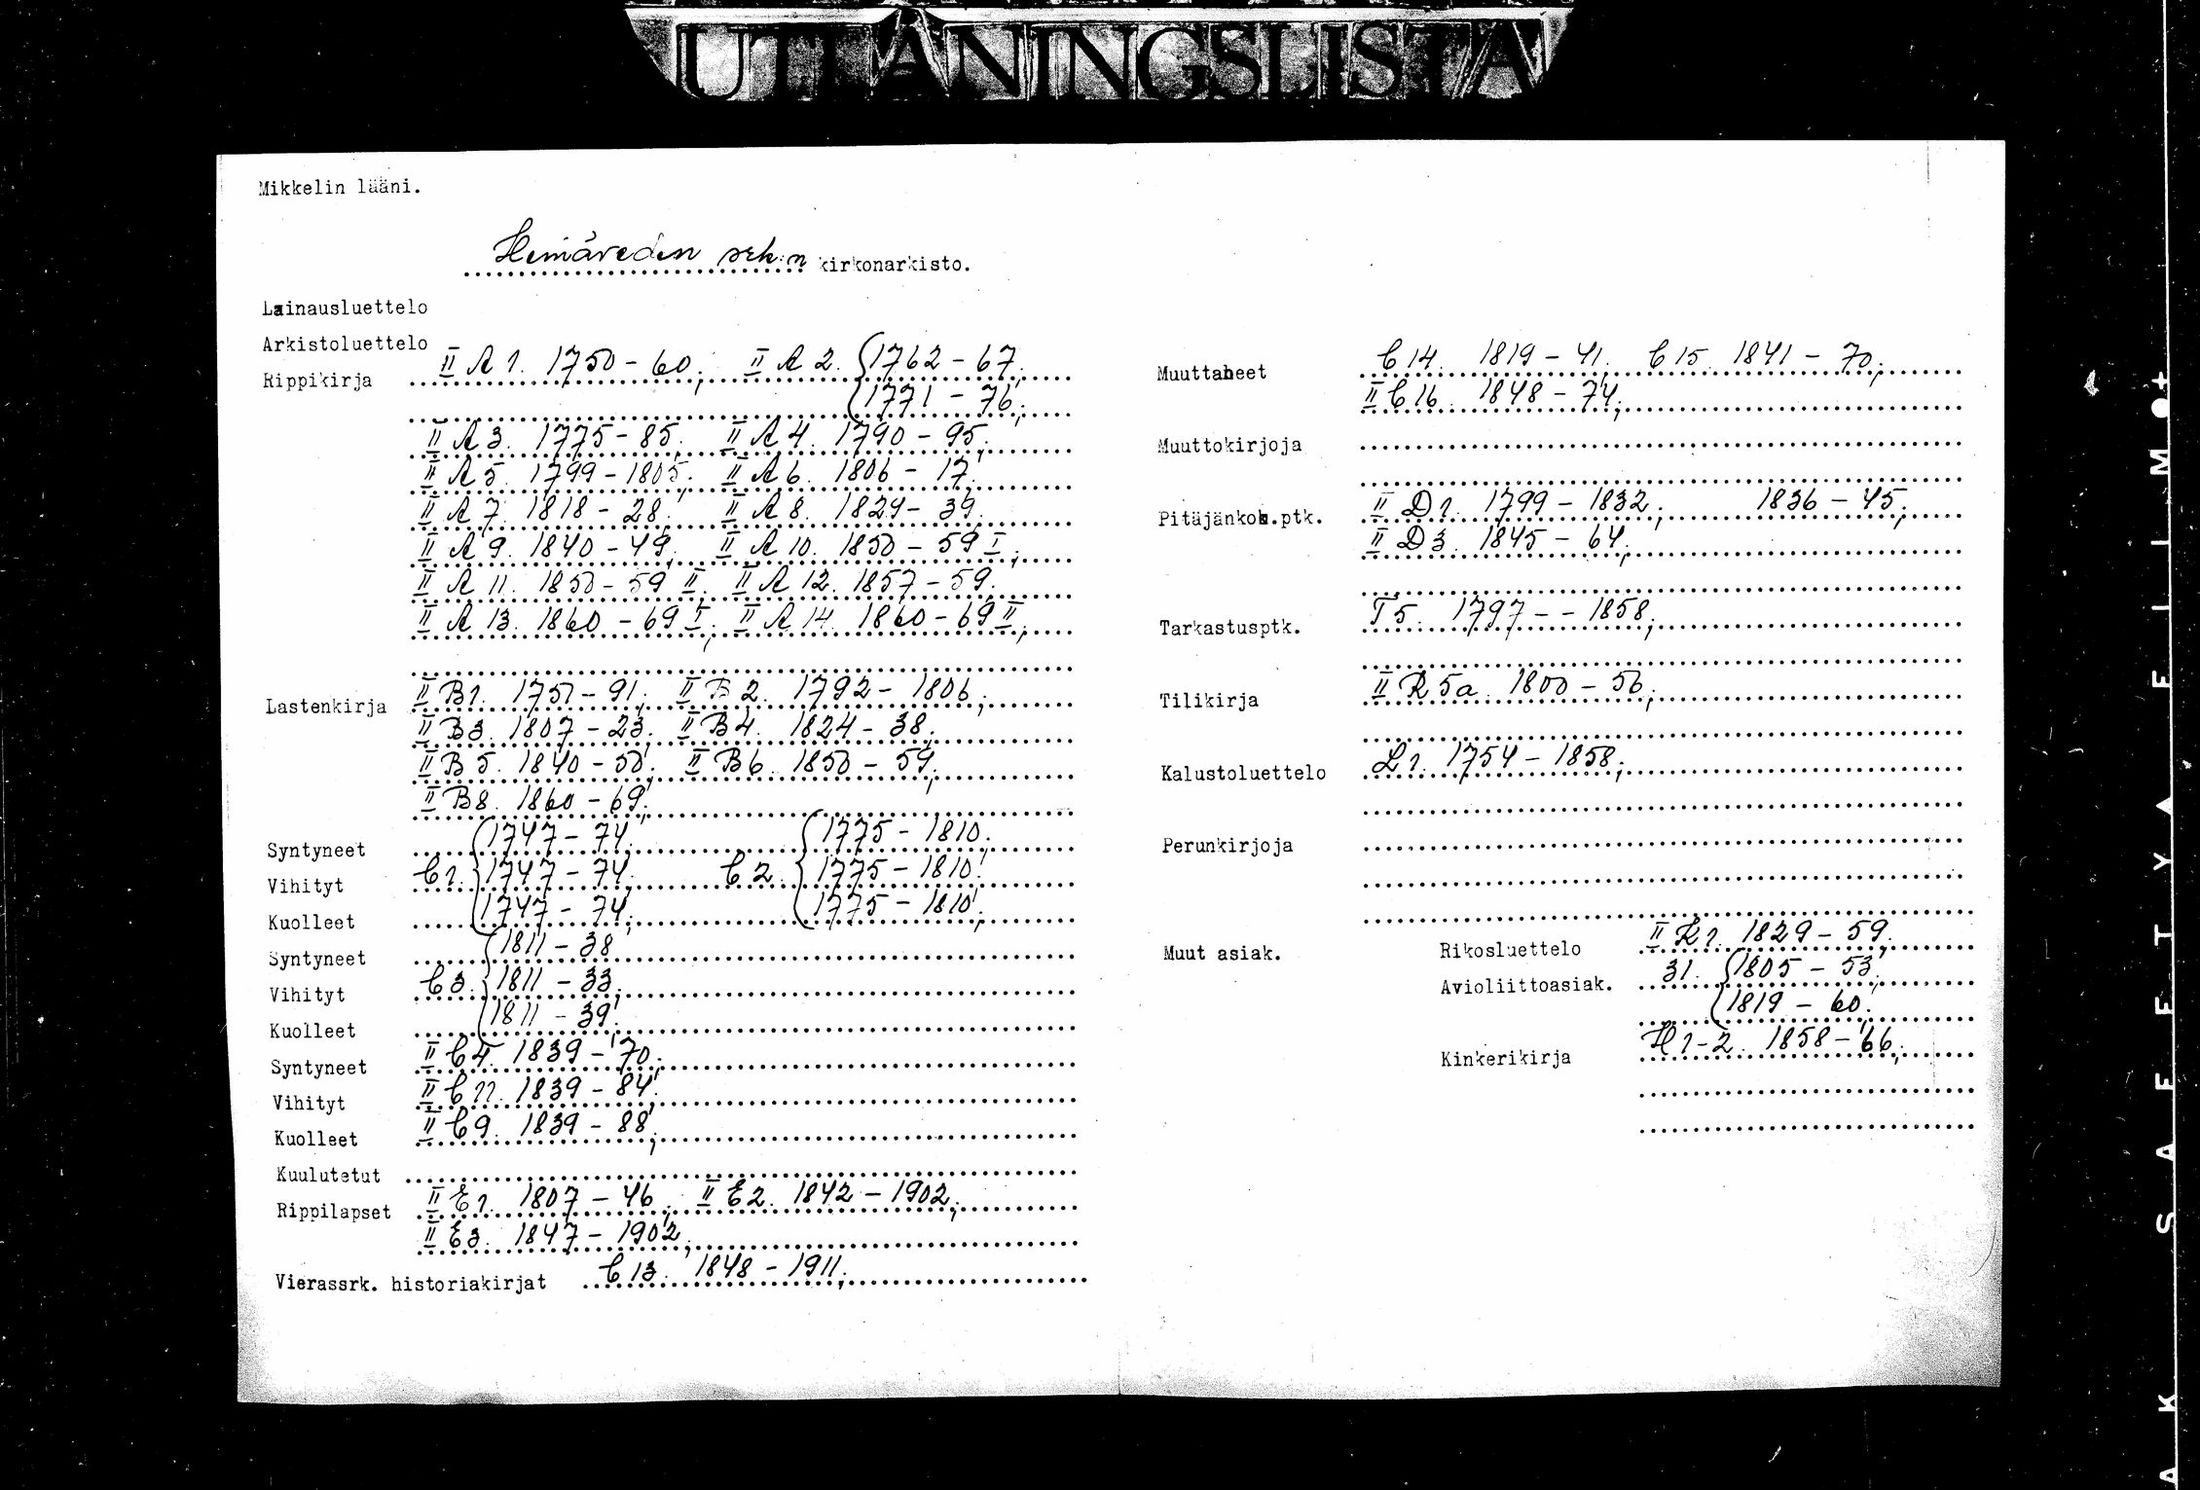 UTLÅNINGSLISTA
Mikkelin lääni.
Heinäveden srk:n kirkonarkisto.
Lainausluettelo
Arkistoluettelo
Rippikirja II A 1. 1750-60; II A 2. 1762-67;
1771-76;
II A 3. 1775-85; II A 4. 1790-95;
II A 5. 1799-1805; II A 6. 1806-17;
II A 7. 1818-28; II A 8. 1829-39;
II A 9. 1840-49; II A 10. 1850-59 I;
II A 11. 1850-59 II; II A 12. 1857-59.
II A 13. 1860-69 I; II A 14. 1860-69 II;
Lastenkirja II B 1. 1751-91; II B 2. 1792-1806;
II B 3. 1807-23; II B 4. 1824-38;
II B 5. 1840-50; II B 6. 1850-59;
II B 8. 1860-69;
Syntyneet 1747-74; 1775-1810;
Vihityt C 1. 1747-74; C 2. 1775-1810;
Kuolleet 1747-74; 1775-1810;
Syntyneet 1811-38
Vihityt C 3. 1811-33;
Kuolleet 1811-39;
Syntyneet II C 4. 1839-70;
Vihityt II C 11. 1839-84;
Kuolleet II C 9. 1839-88;
Kuulutetut
Rippilapset II E 1. 1807-46; II E 2. 1842-1902;
II E 3. 1847-1902;
Vierassrk. historiakirjat C 13. 1848-1911;
Muuttaneet C 14. 1819-41. C 15. 1841-70;
II C 16. 1848-74;
Muuttokirjoja
Pitäjänkok.ptk. II D 1. 1799-1832; 1836-45;
II D 3. 1845-64;
Tarkastusptk. T 5. 1797--1858;
Tilikirja II R 5a. 1800-56;
Kalustoluettelo L 1. 1754-1858;
Perunkirjoja
Muut asiak. Rikosluettelo II K 1. 1829-59;
Avioliittoasiak. 31. 1805-53;
1819-60;
Kinkerikirja H 1-2. 1858-66;